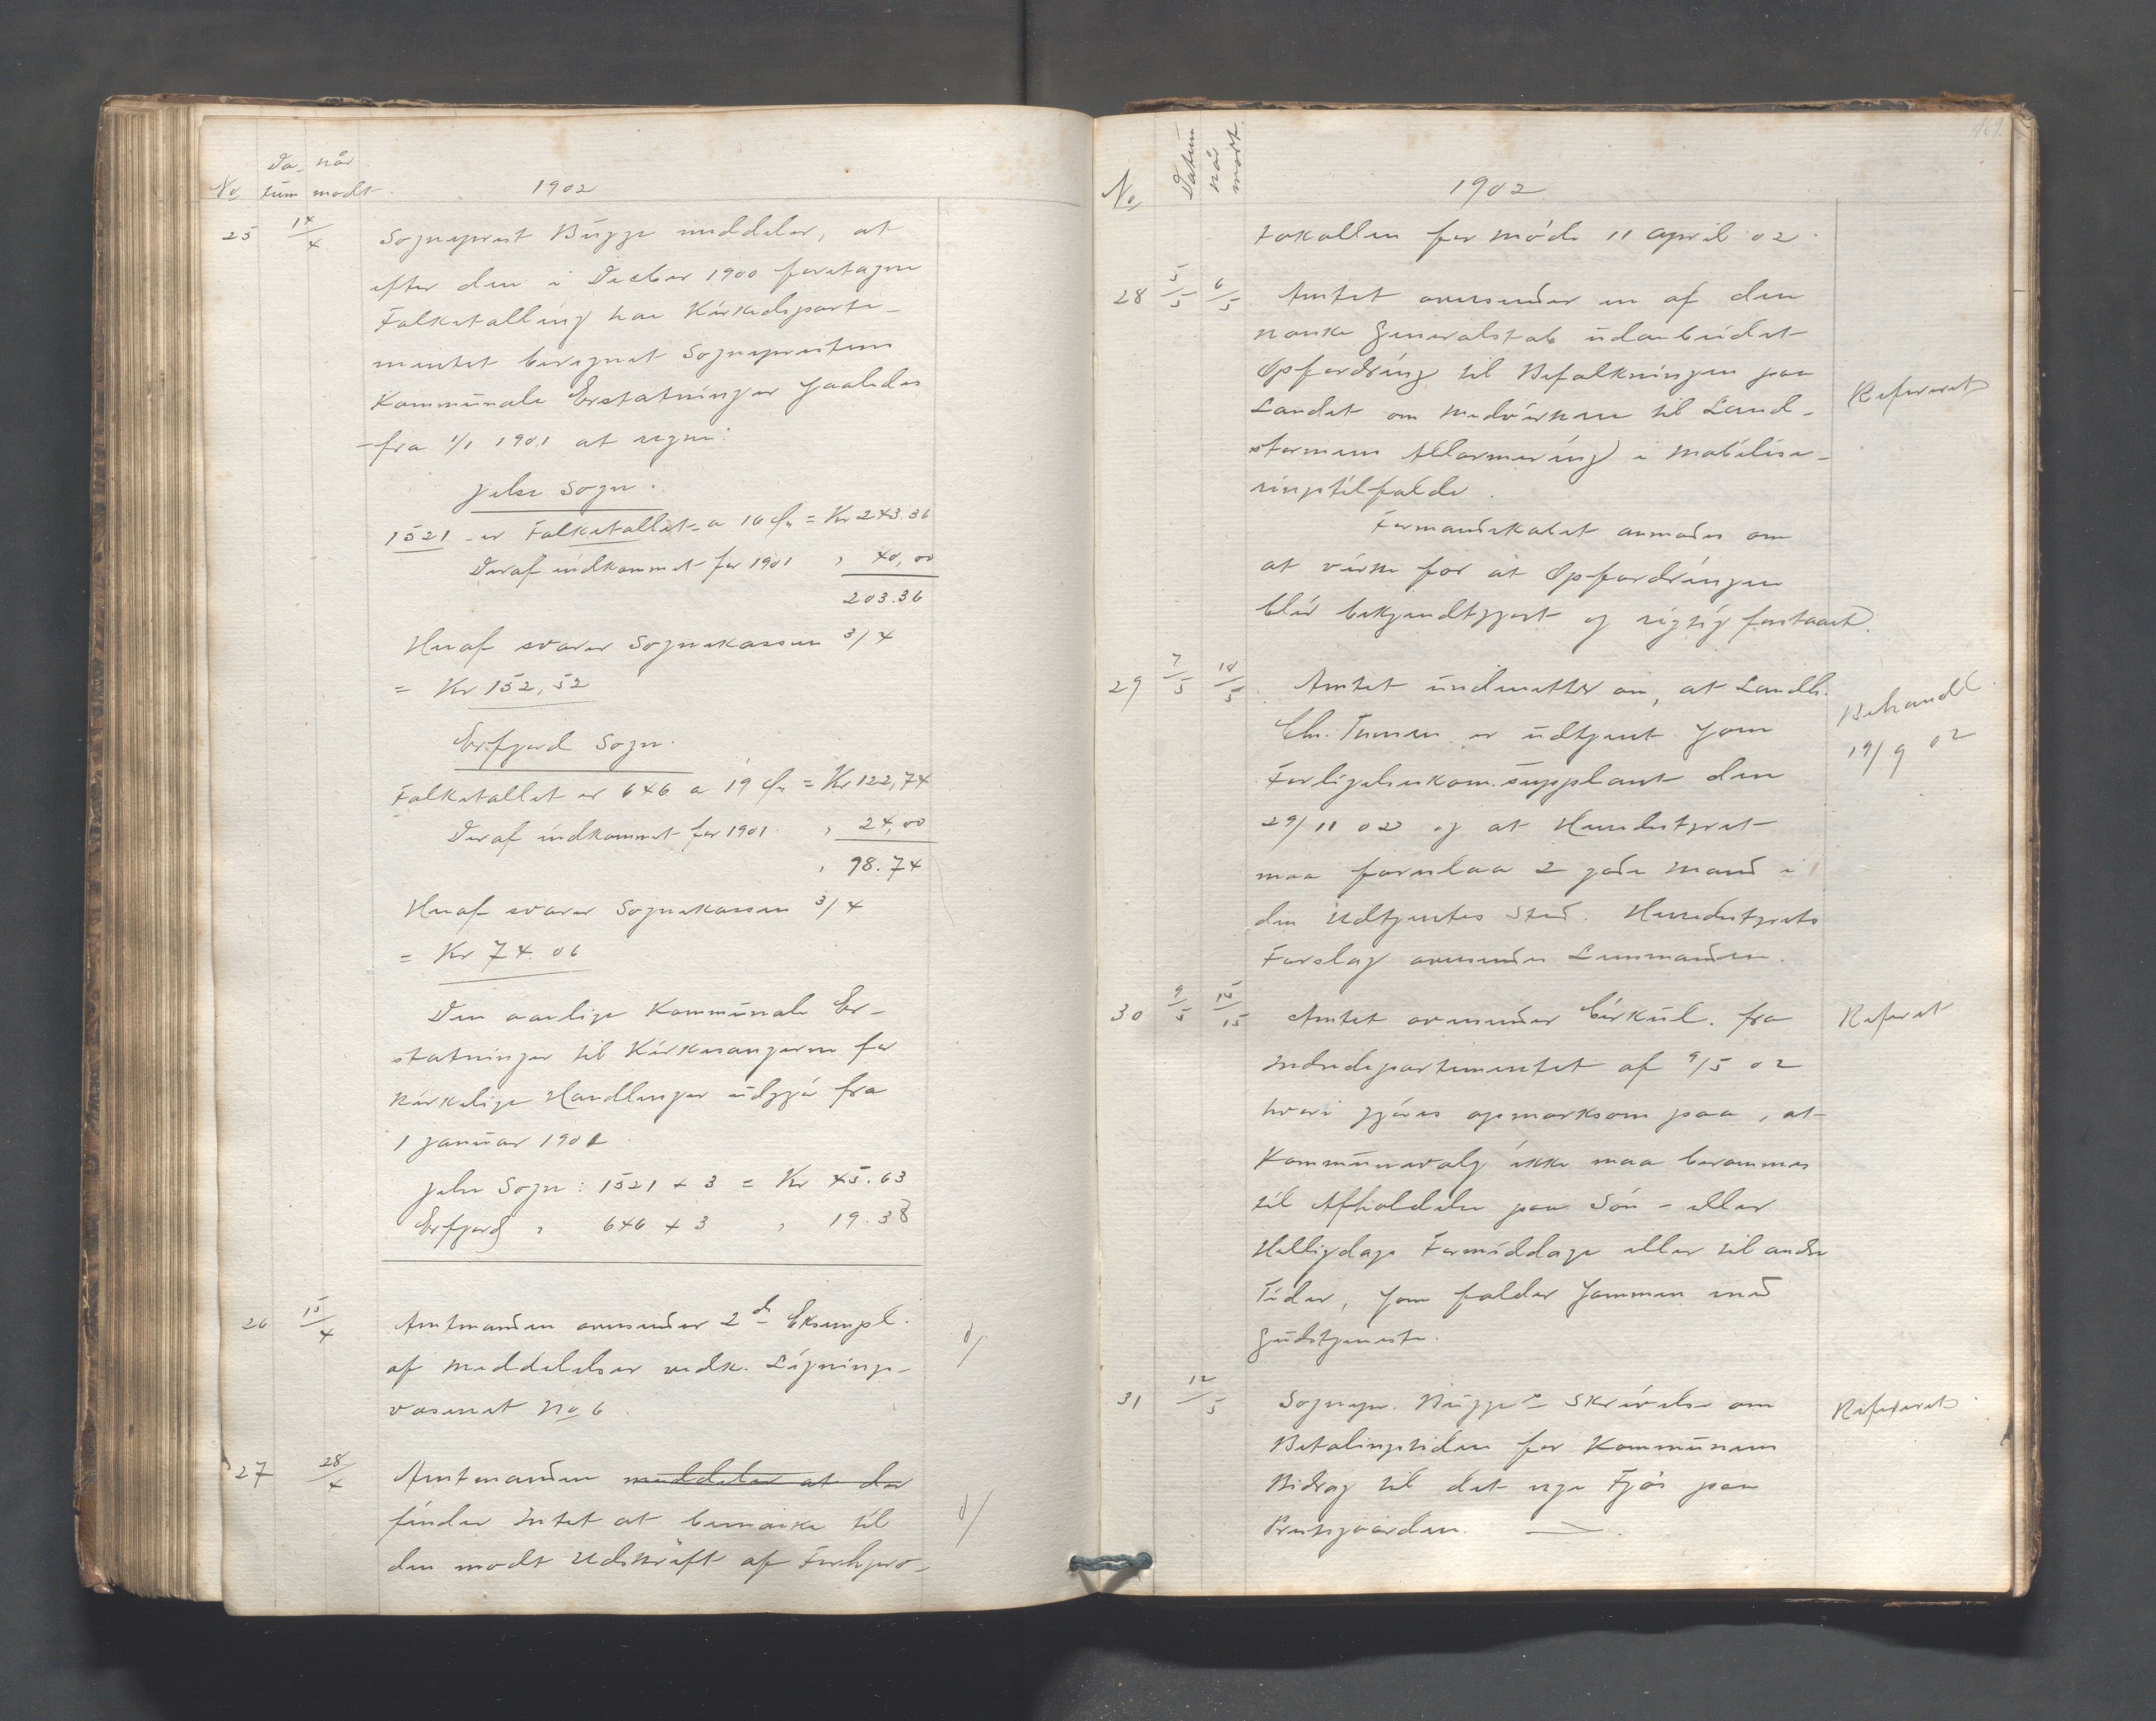 Da- når
No tum modt. 1902
25 14/4 Sogneprest Bugge meddeler, at
efter den i Decber 1900 foretagne
Folketælling har Kirkedeparte-
mentet beregnet Sogneprestens
Kommunale Erstatninger saaledes
fra 1/1 1901 at regne:
Jelse Sogn.
1521 er Folketallet a 16 Øre = Kr 243.36
Deraf indkommet for 1901 " 40,00
203.36
Heraf svarer Sognekassen 3/4
= Kr 152,52
Erfjord Sogn.
Folketallet er 646 a 19 Øre = Kr 122,74
Deraf indkommet for 1901 " 24,00
" 98.74
Heraf svarer Sognekassen 3/4
= Kr 74.06
Den aarlige Kommunale Er-
statninger til Kirkesangerne for
kirkelige Handlinger udgjør fra
1 januar 1901
Jelse Sogn: 1521 + 3 = Kr 45.63
Erfjord " 646 + 3 " 19.38
26 15/4 Amtmanden oversender 2de Eksempl.
af Meddelelser vedk. Lignings-
væsenet No 6.
27 28/4 Amtmanden meddeler at der
finder Intet at bemærke til
den modt Udskrift af Forhpro-
No Datum når modt. 1902
tokollen for Møde 11 april 02.
28 5/5 6/5 Amtet oversender en af den
norske Generalstab udarbeidet
Opfordring til Befolkningen paa
Landet om Medvirken til Land-
stormens Allarmering i Mobilise-
ringstilfælde.
Referert
Formandskabet anmodes om
at virke for at Opfordringen
blir bekjendtgjort og rigtig forstaaet.
29 7/5 10/5 Amtet underretter om, at Landh.
Chr. er udtjent som
Forligelseskom.supplant den
29/11 02 og at Herredstyret
maa foreslaa 2 gode Mænd i
den Udtjentes Sted. Herredstyrets
Forslag oversendes Lensmanden.
Behandl.
19/9 02
30 9/5 14/15 Amtet oversender Cirkul. fra
Indredepartementet af 9/5 02
hvori gjøres opmærksom paa, at
Kommunevalg ikke maa berammes
til Afholdelse paa Søn- eller
Helligdags Formiddage eller til andre
Tider, som falder sammen med
Gudstjeneste.
Referert
31 12/5 Sognepr. Bugges Skrivelse om
Betalingstiden for Kommunens
Bidrag til det nye Fjøs paa
Prestegaarden.
Refereret